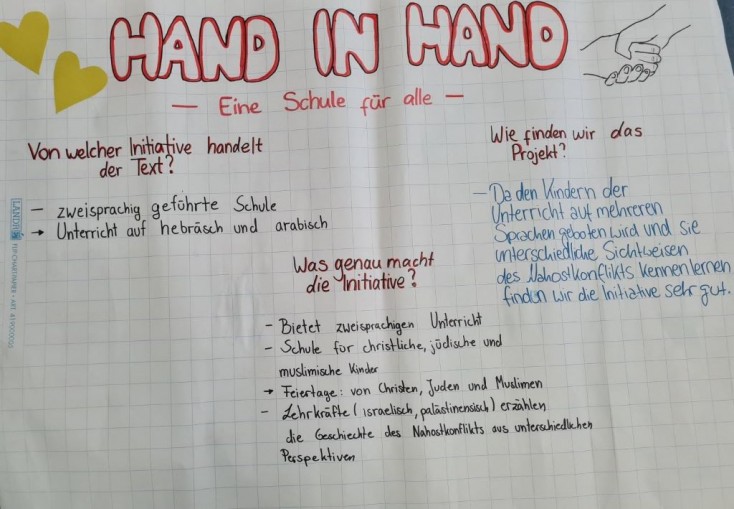 HAND IN HAND
— Eine Schule für alle —
Von welcher Initiative handelt
der Text?
– zweisprachig geführte Schule
→ Unterricht auf hebräsch und arabisch
Was genau macht
die Initiative?
– Bietet zweisprachigen Unterricht
– Schule für christliche, jüdische und
muslimische Kinder
→ Feiertage: von Christen, Juden und Muslimen
– Lehrkräfte (israelisch, palästinensisch) erzählen
die Geschiechte des Nahostkonflikts aus unterschiedlichen
Perspektiven
Wie finden wir das
Projekt?
– Da den Kindern der
Unterricht auf mehreren
Sprachen geboten wird und sie
unterschiedliche Sichtweisen
des Nahostkonflikts kennenlernen
finden wir die Initiative sehr gut.
LANDRÉ